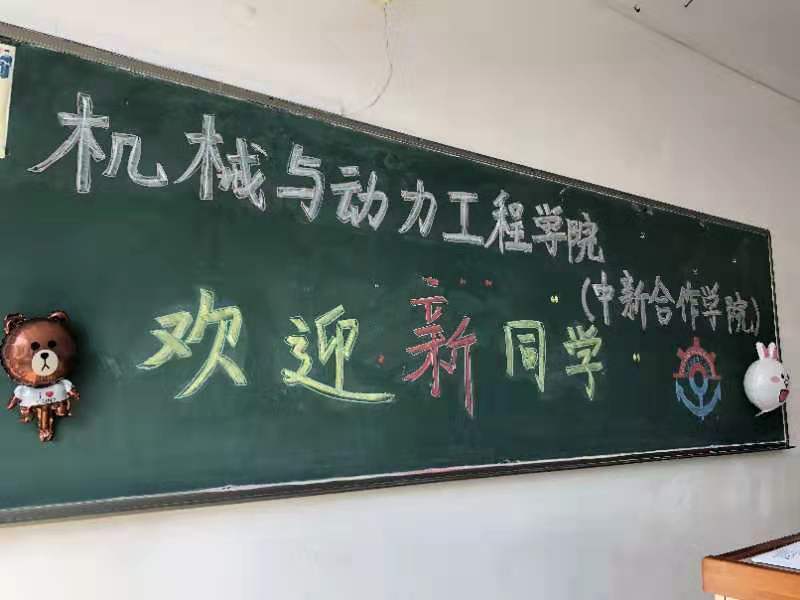 机械与动力工程学院
(中新合作学院)
欢迎新同学